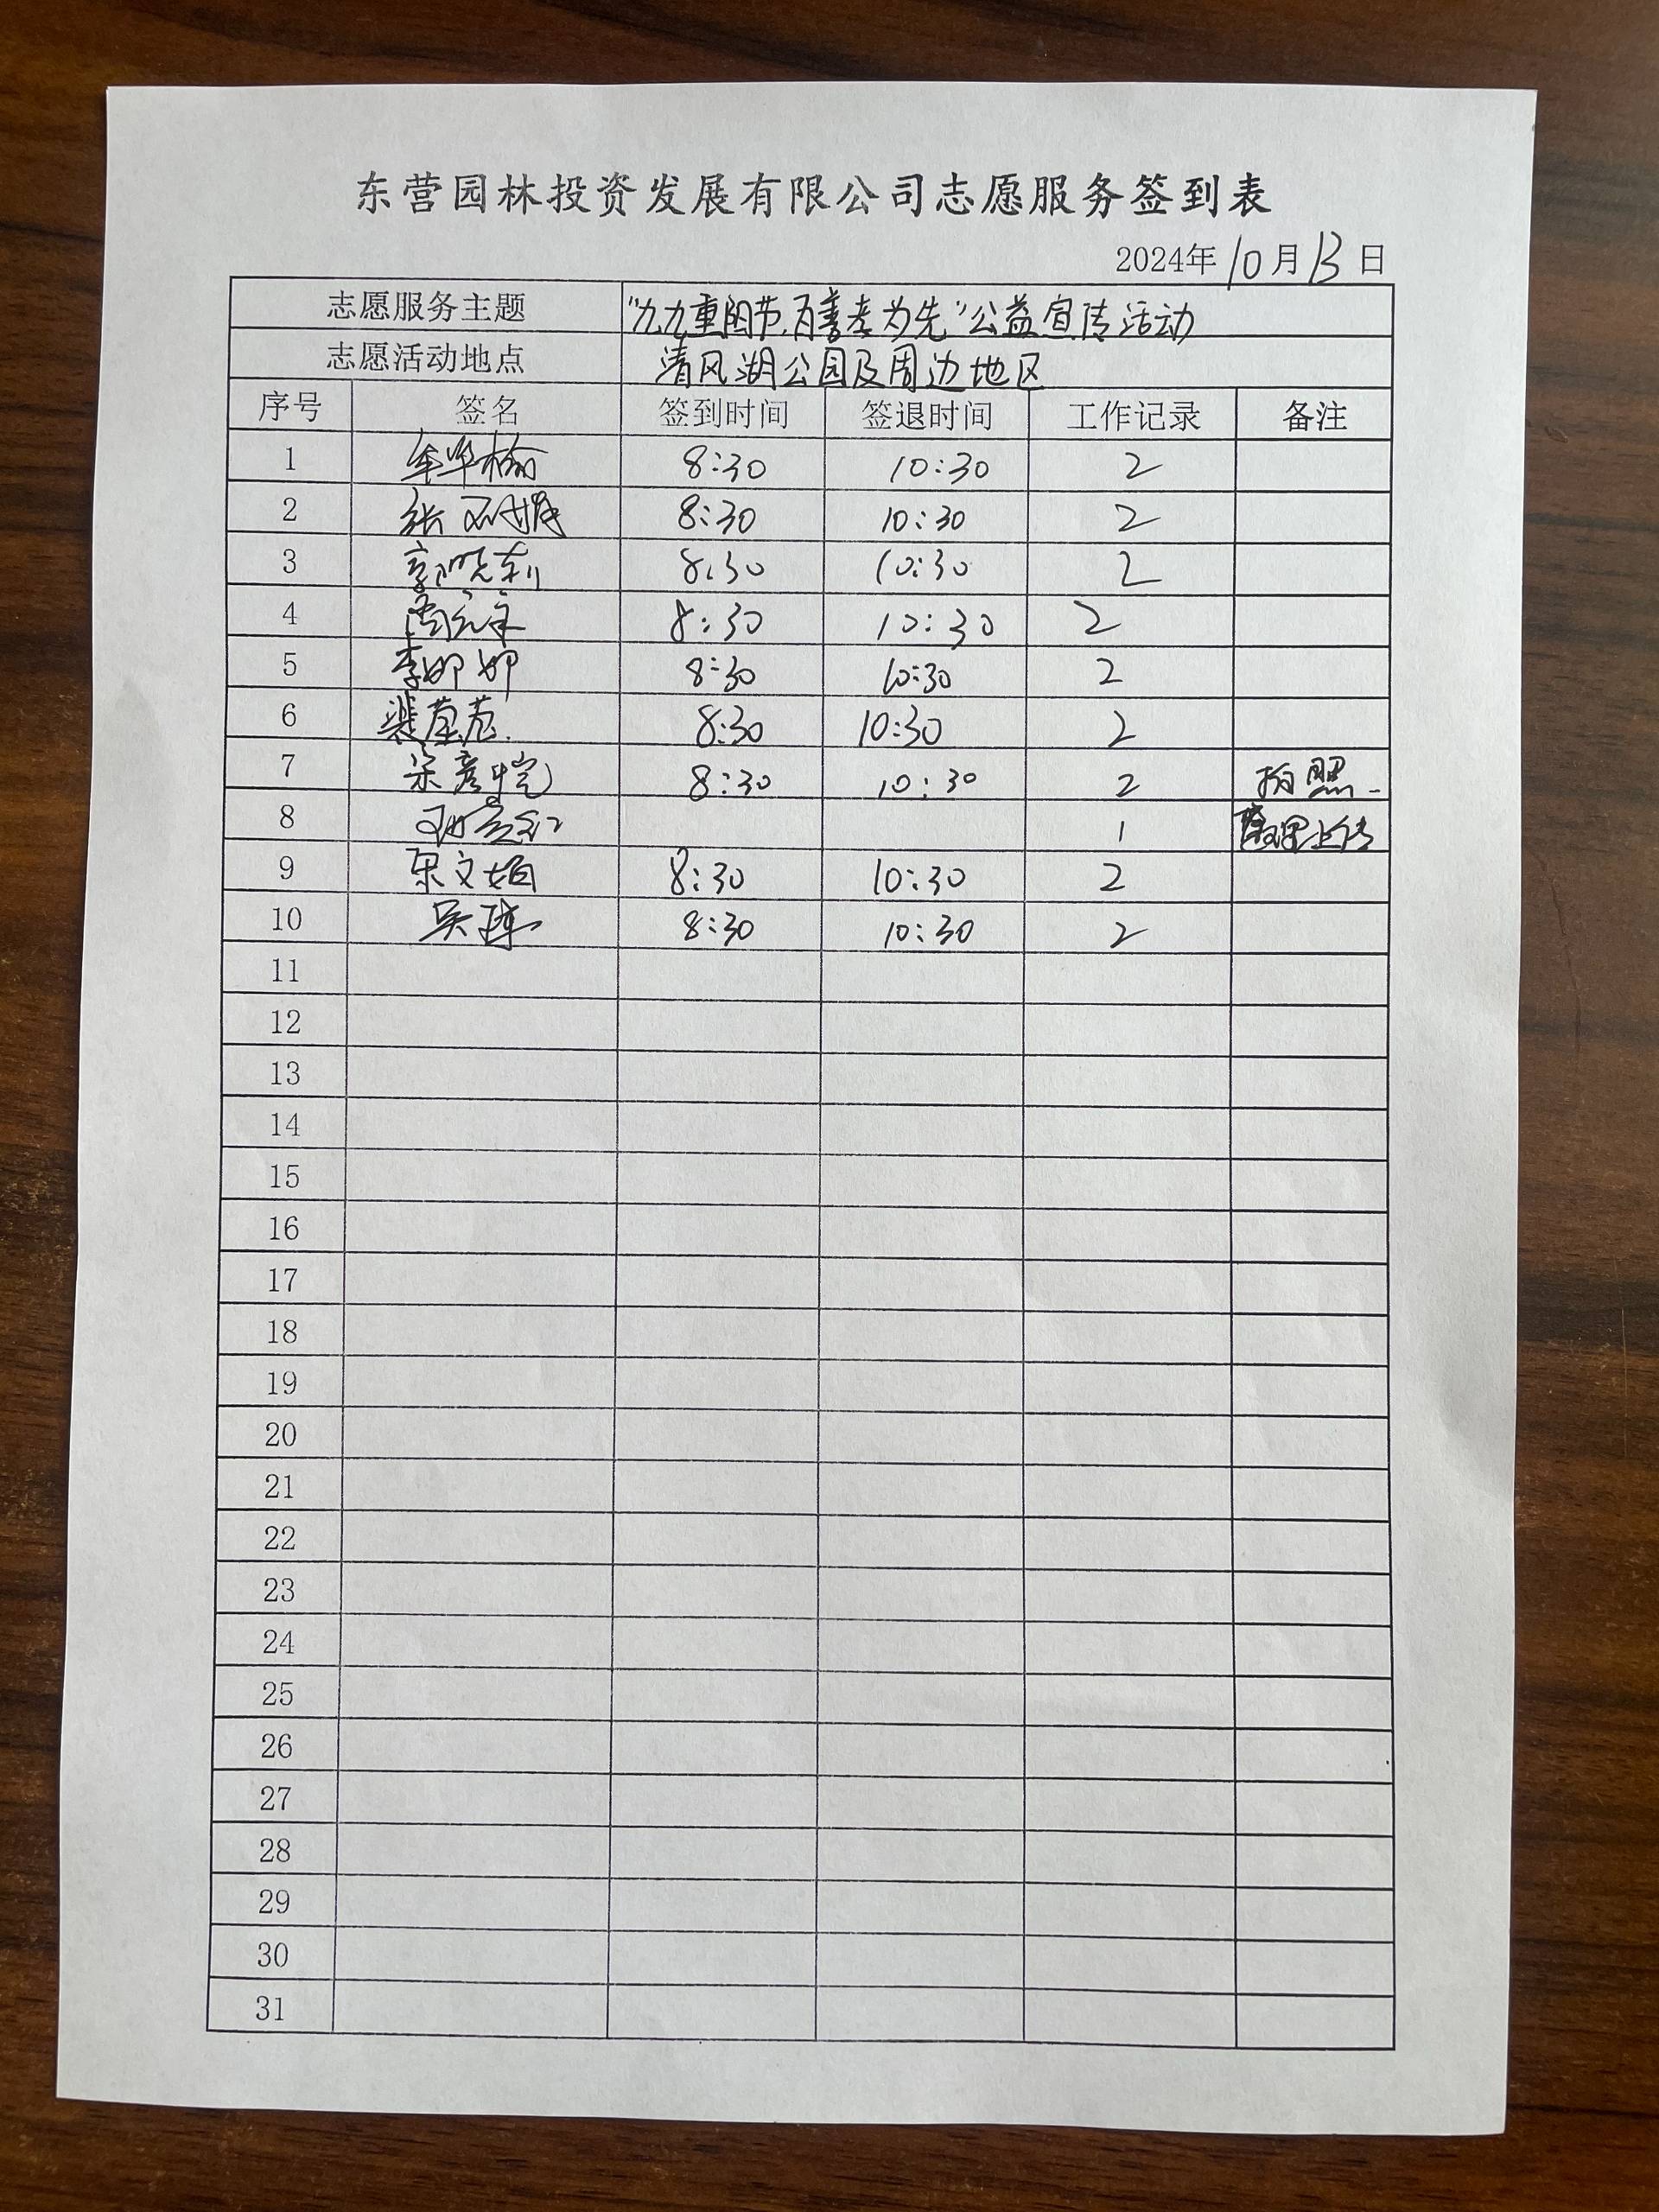 东营园林投资发展有限公司志愿服务签到表
2024年10月13日
志愿服务主题 "九九重阳节,百善孝为先"公益宣传活动
志愿活动地点 清风湖公园及周边地区
序号 签名 签到时间 签退时间 工作记录 备注
1 8:30 10:30 2
2 张 8:30 10:30 2
3 郭晓莉 8:30 10:30 2
4 8:30 10:30 2
5 李娜娜 8:30 10:30 2
6 8:30 10:30 2
7 宋彦恺 8:30 10:30 2 拍照
8 1 整理上传
9 宋文娟 8:30 10:30 2
10 吴琼 8:30 10:30 2
11
12
13
14
15
16
17
18
19
20
21
22
23
24
25
26
27
28
29
30
31